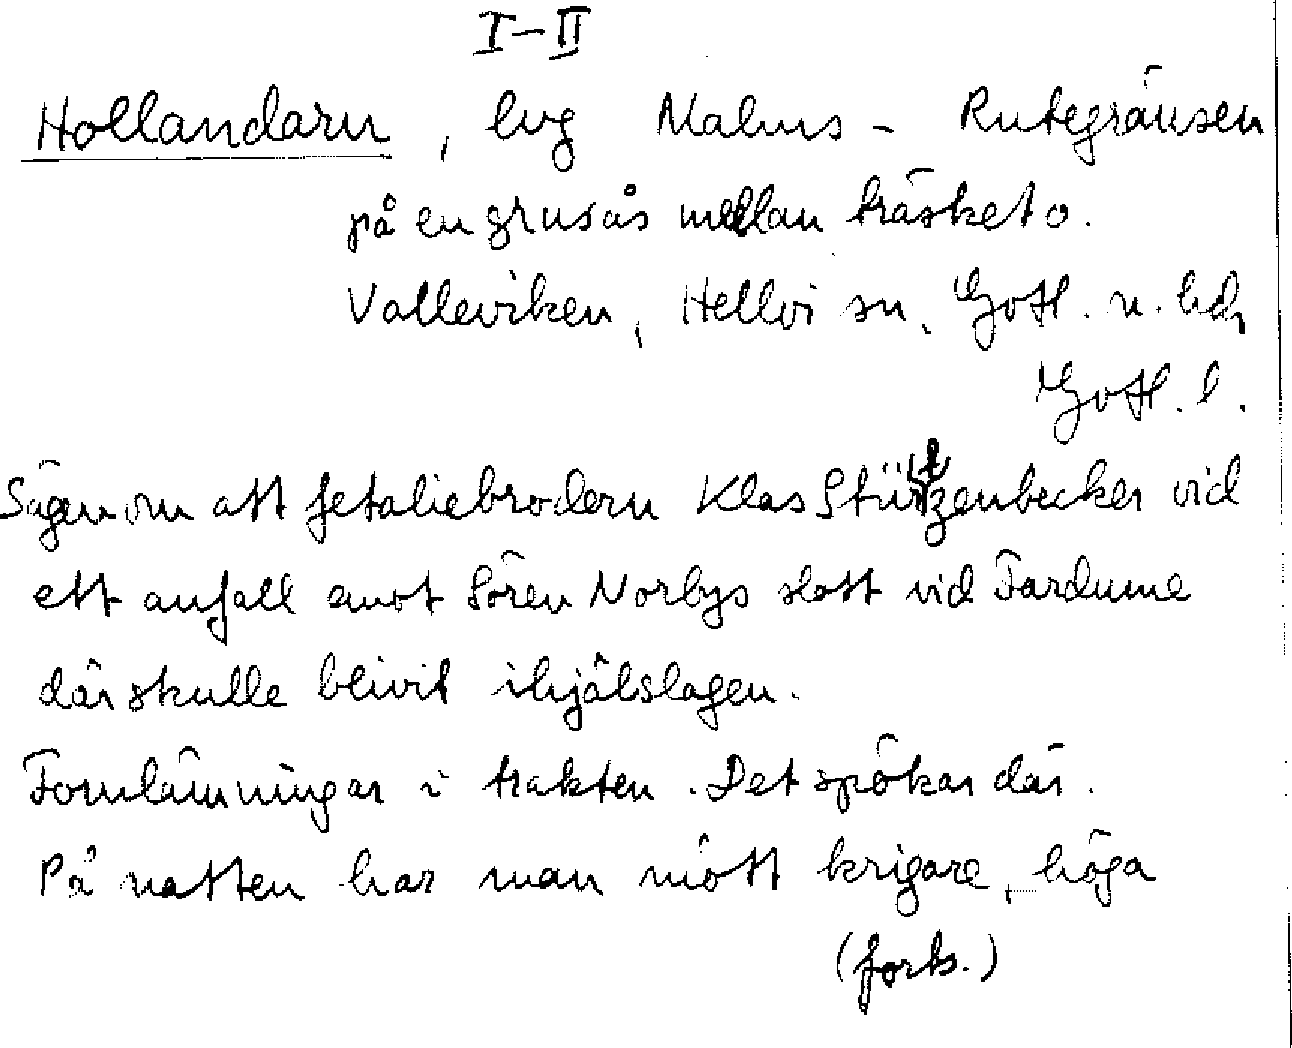 I-II
Hollandarn, lug Malms - Rutegränsen
på en grusås mellan träsket o.
Valleviken, Hellvi sn, Gotl. n. hd,
Gotl. l.
Sägen om att fetaliebrodern Klas Stürtzenbecker vid
ett anfall emot Sören Norbys slott vid Fardume
där skulle blivit ihjälslagen.
Fornlämningar i trakten. Det spökar där.
På natten har man mött krigare, höga
(forts.)